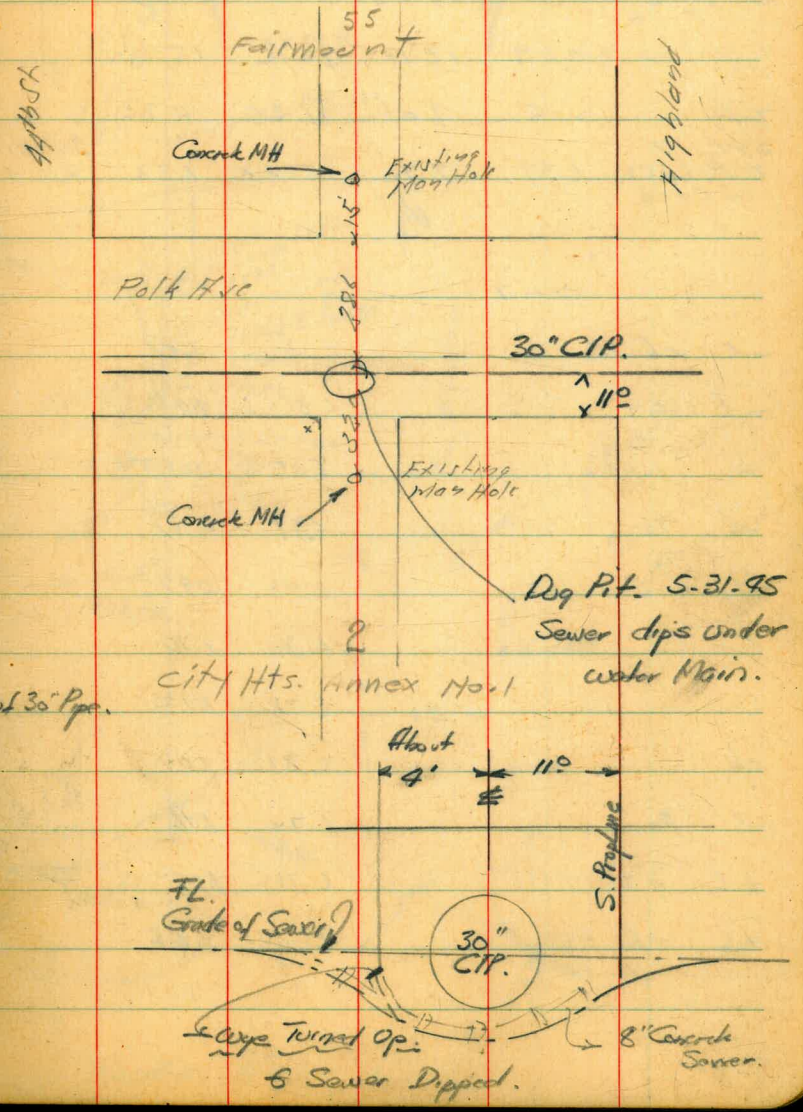 55
Fairmount
44th St
Highland
Concrete MH
Existing
Man Hole
15
286
Polk Ave
30" CIP.
11º
Existing
Man Hole
Concrete MH
Dug Pit. 5-31-45
Sewer dips under
water Main.
2
City Hts. Annex No. 1
of 30" Pipe.
About
4'
11º
S. Prop Line
FL.
Grade of Sewer
30"
CIP.
Wye Turned Up.
& Sewer Dipped.
8" Concrete
Sewer.